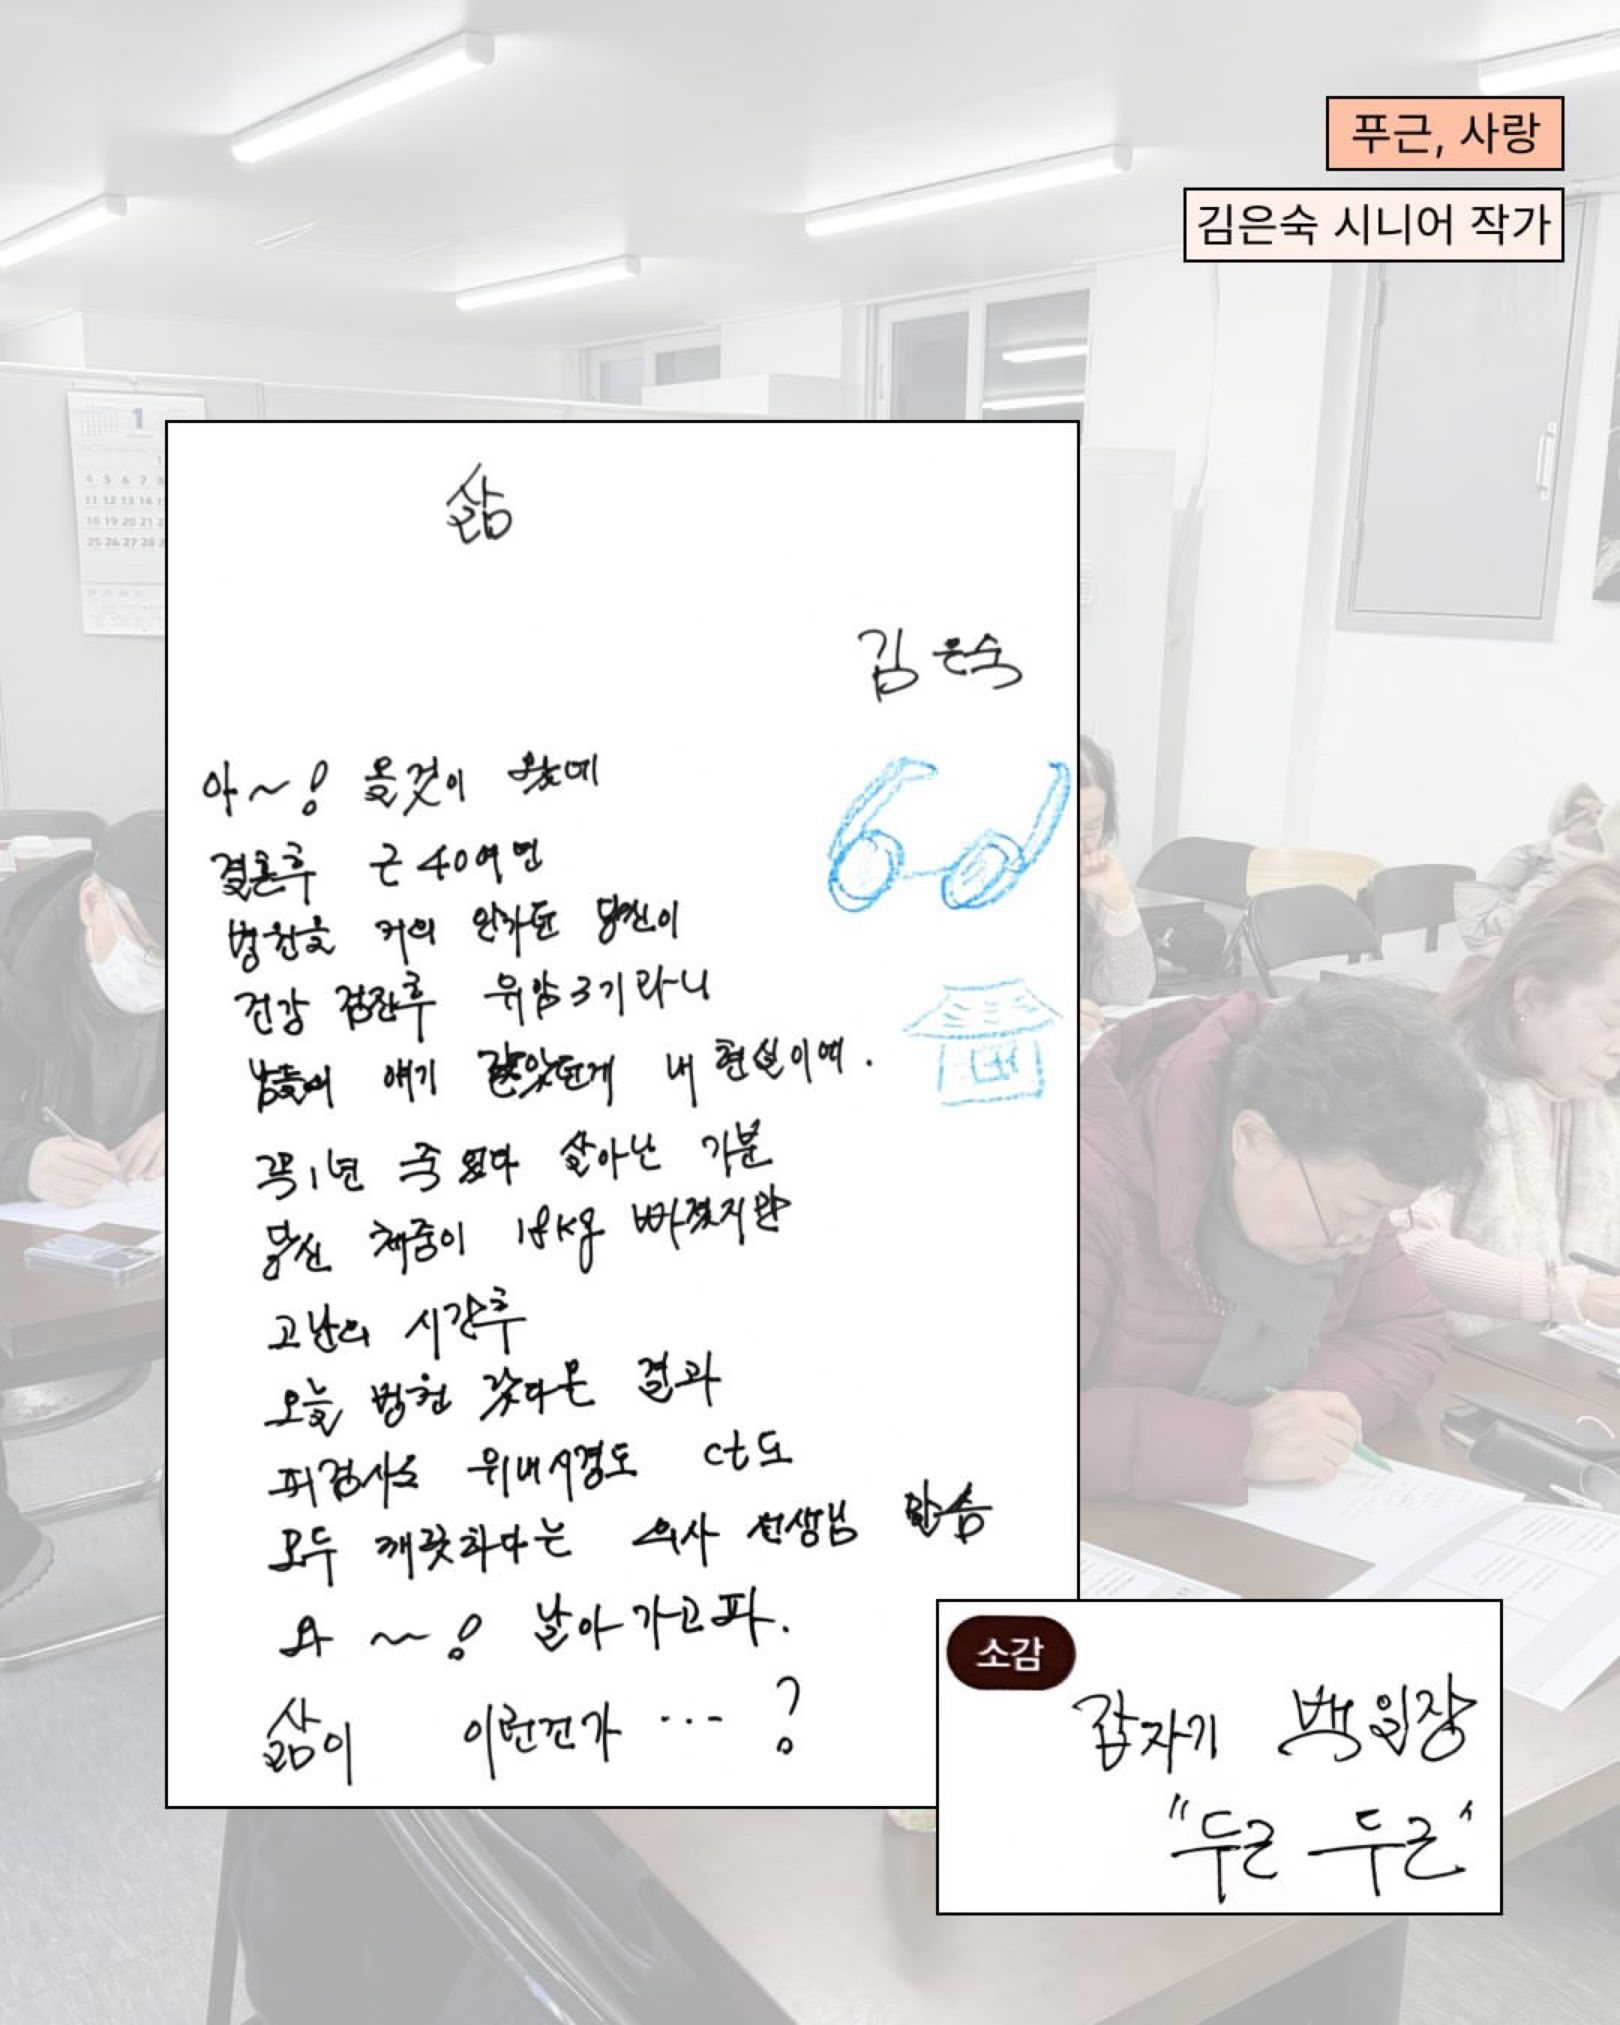 푸근, 사랑
김은숙 시니어 작가
1
4 5 6 7 8
11 12 13 14
18 19 20 21 2
25 26 27 28
삶
김은숙
아~! 올것이 왔네
결혼후 근 40여년
병원을 거의 안가던 당신이
건강 검진후 위암 3기라니
남들에 얘기 같았던게 내 현실이예.
꼭 1년 죽었다 살아난 기분
당신 체중이 18kg 빠졌지만
고난의 시간후
오늘 병원 갖다온 결과
피검사도 위내시경도 ct도
모두 깨끗하다는 의사 선생님 말씀
와~! 날아가고파.
삶이 이런건가 ... ?
소감
갑자기 백일장
"두근 두근"